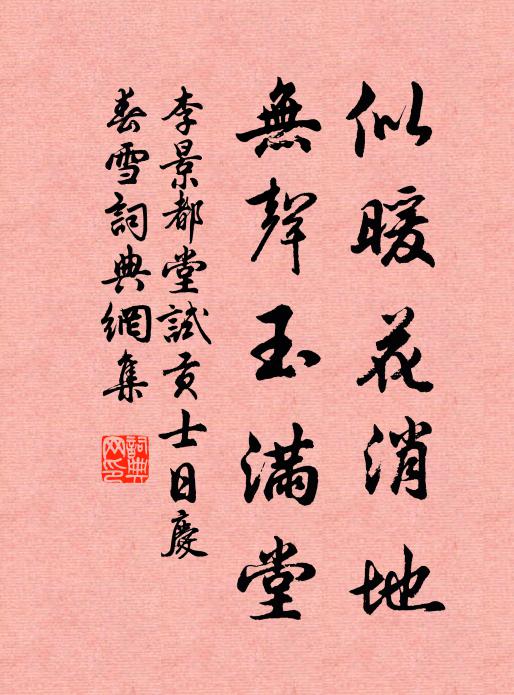 似暖花消地
無聲玉滿堂
李景都堂試貢士日慶
春雪詞典網集
詞典網印